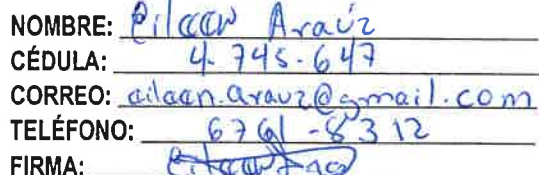 NOMBRE: Eilaan Araúz
CÉDULA: 4-745-647
CORREO: eilaan.arauz@gmail.com
TELÉFONO: 6761-8312
FIRMA: